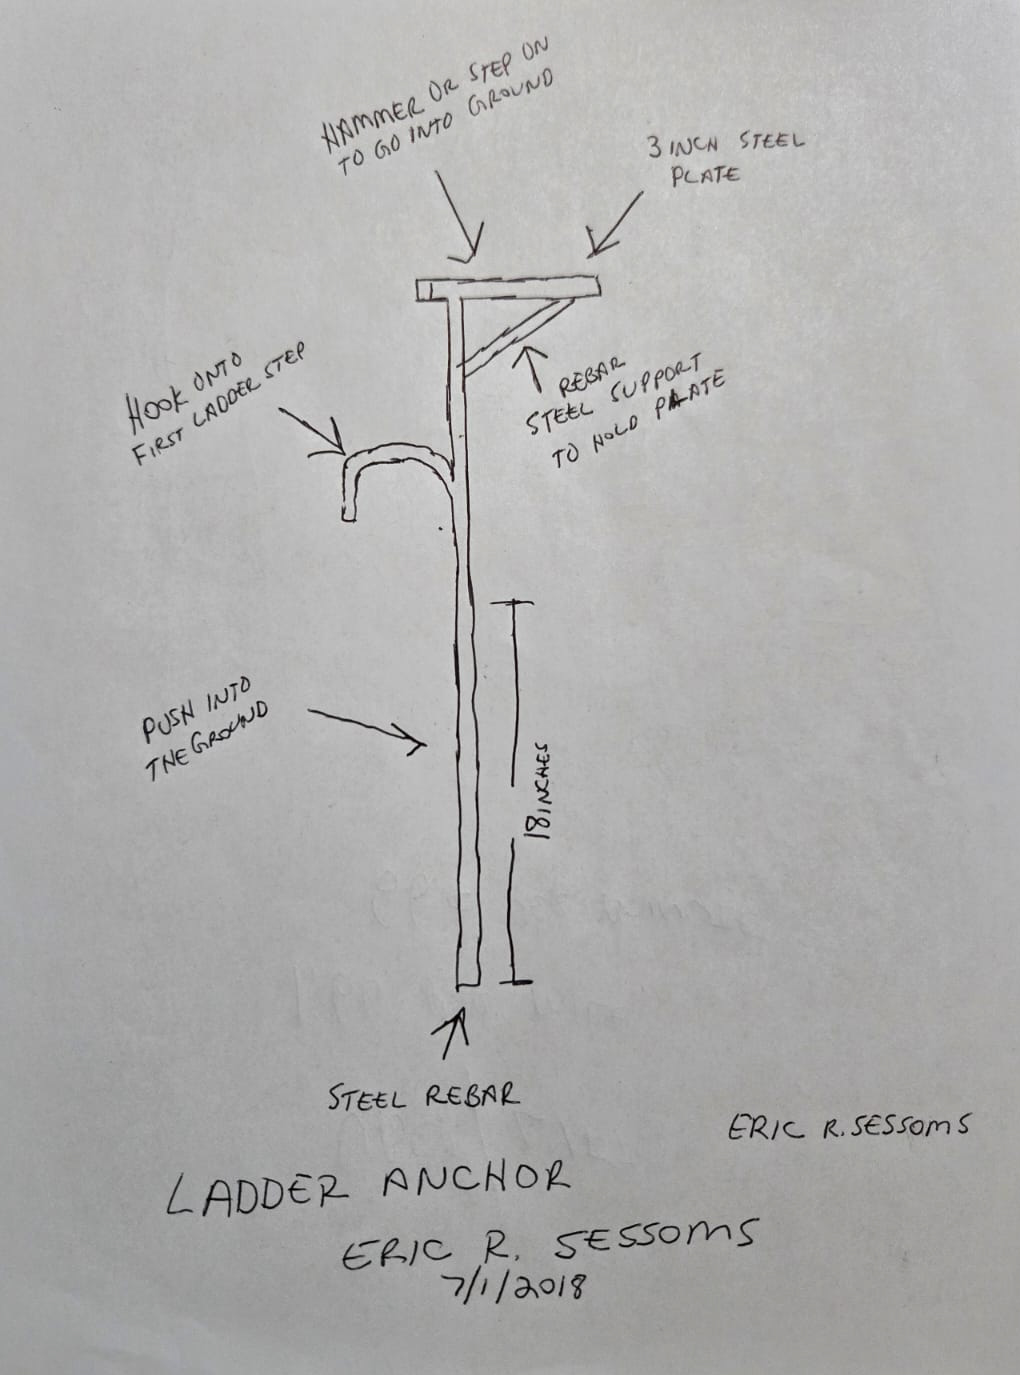 HAMMER OR STEP ON
TO GO INTO GROUND
3 INCH STEEL
PLATE
HOOK ONTO
FIRST LADDER STEP
REBAR
STEEL SUPPORT
TO HOLD PLATE
PUSH INTO
THE GROUND
18 INCHES
STEEL REBAR
ERIC R. SESSOMS
LADDER ANCHOR
ERIC R. SESSOMS
7/1/2018